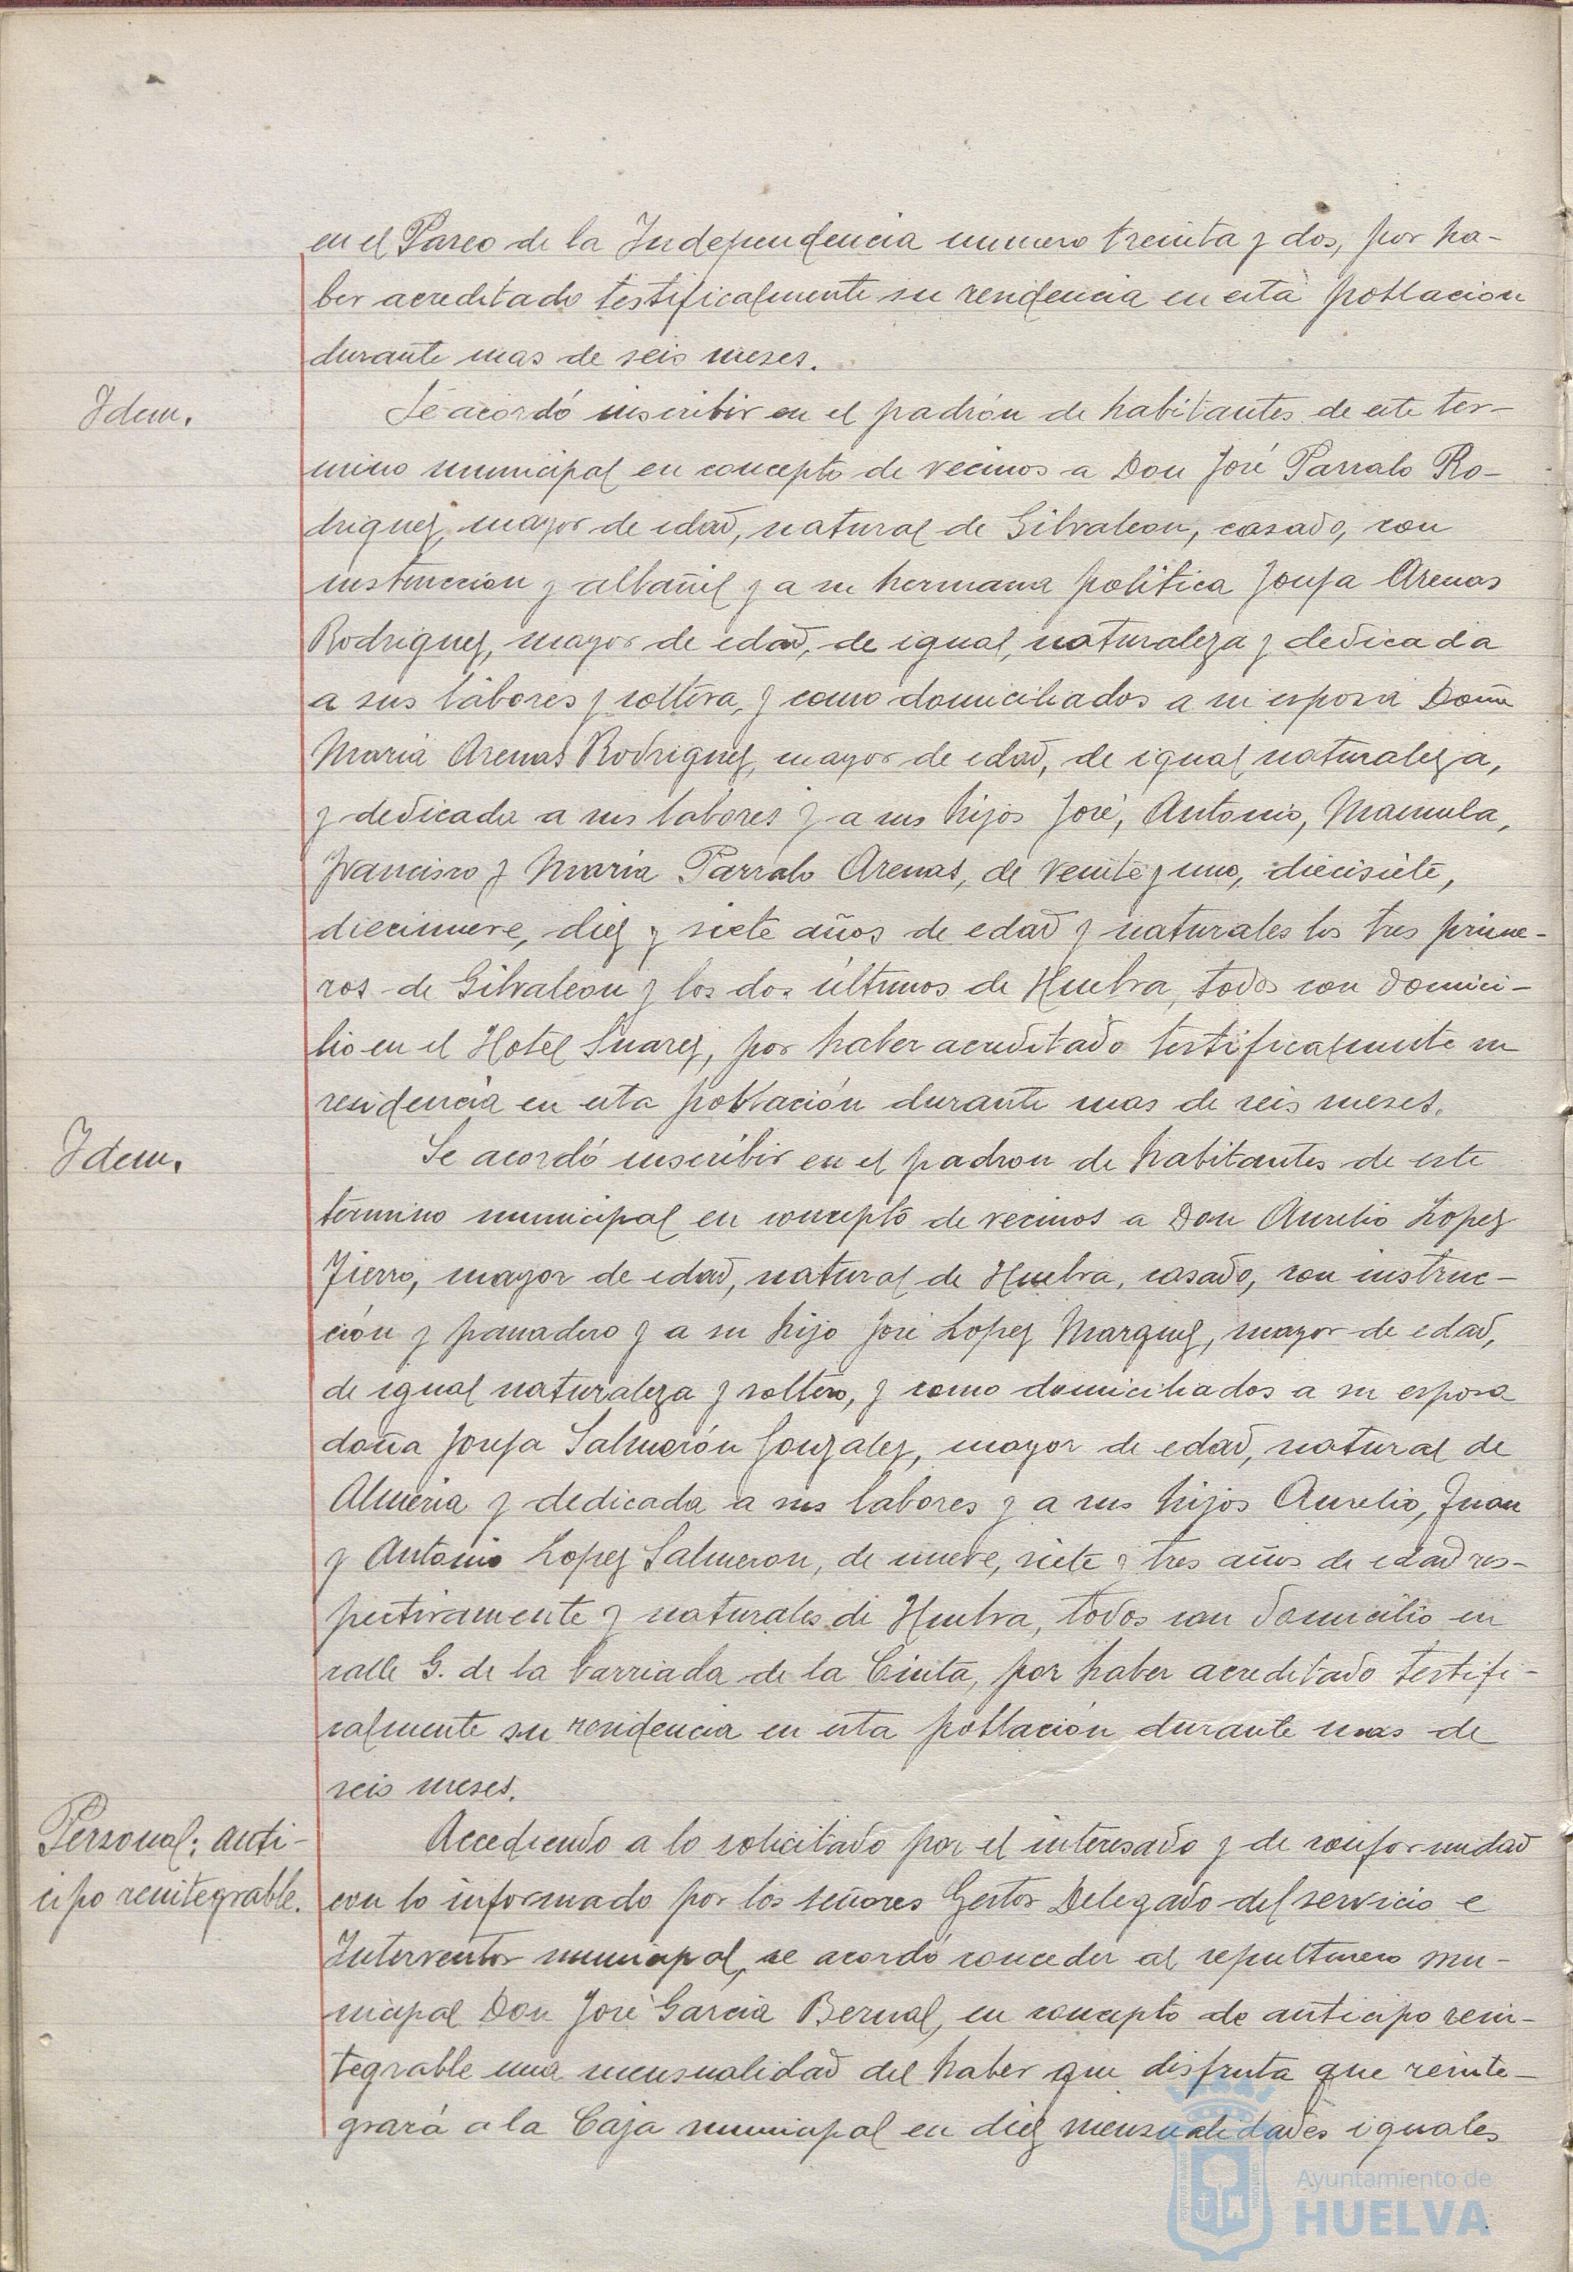 en el Paseo de la Independencia numero treinta y dos, por ha-
ber acreditado testificalmente su residencia en esta poblacion
durante mas de seis meses.
Idem.
Se acordó inscribir en el padrón de habitantes de este ter-
mino municipal en concepto de vecinos a Don José Parralo Ro-
driguez, mayor de edad, natural de Gibraleon, casado, con
instruccion y albañil y a su hermana politica Josefa Arenas
Rodriguez, mayor de edad, de igual naturaleza y dedicada
a sus labores y soltera, y como domiciliados a su esposa Doña
Maria Arenas Rodriguez, mayor de edad, de igual naturaleza,
y dedicada a sus labores y a sus hijos José, Antonio, Manuela,
Francisco y María Parralo Arenas, de veinte y uno, diecisiete,
diecinueve, diez y siete años de edad y naturales los tres prime-
ros de Gibraleon y los dos últimos de Huelva, todos con domici-
lio en el Hotel Suarez, por haber acreditado testificalmente su
residencia en esta población durante mas de seis meses.
Idem.
Se acordó inscribir en el padron de habitantes de este
término municipal en concepto de vecinos a Don Aurelio Lopez
Fierro, mayor de edad, natural de Huelva, casado, con instruc-
ción y panadero y a su hijo José Lopez Marquez, mayor de edad,
de igual naturaleza y soltero, y como domiciliados a su esposa
doña Josefa Salmerón Gonzalez, mayor de edad, natural de
Almeria y dedicada a sus labores y a sus hijos Aurelio, Juan
y Antonio Lopez Salmeron, de nueve, siete y tres años de edad res-
pectivamente y naturales de Huelva, todos con domicilio en
calle G. de la barriada de la Cinta, por haber acreditado testifi-
calmente su residencia en esta población durante mas de
seis meses.
Personal: anti-
cipo reintegrable.
Accediendo a lo solicitado por el interesado y de conformidad
con lo informado por los señores Gestor Delegado del servicio e
Interventor municipal, se acordó conceder al sepulturero mu-
nicipal Don José Garcia Bernal, en concepto de anticipo rein-
tegrable una mensualidad del haber que disfruta que reinte-
grará a la Caja municipal en diez mensualidades iguales
Ayuntamiento de
HUELVA